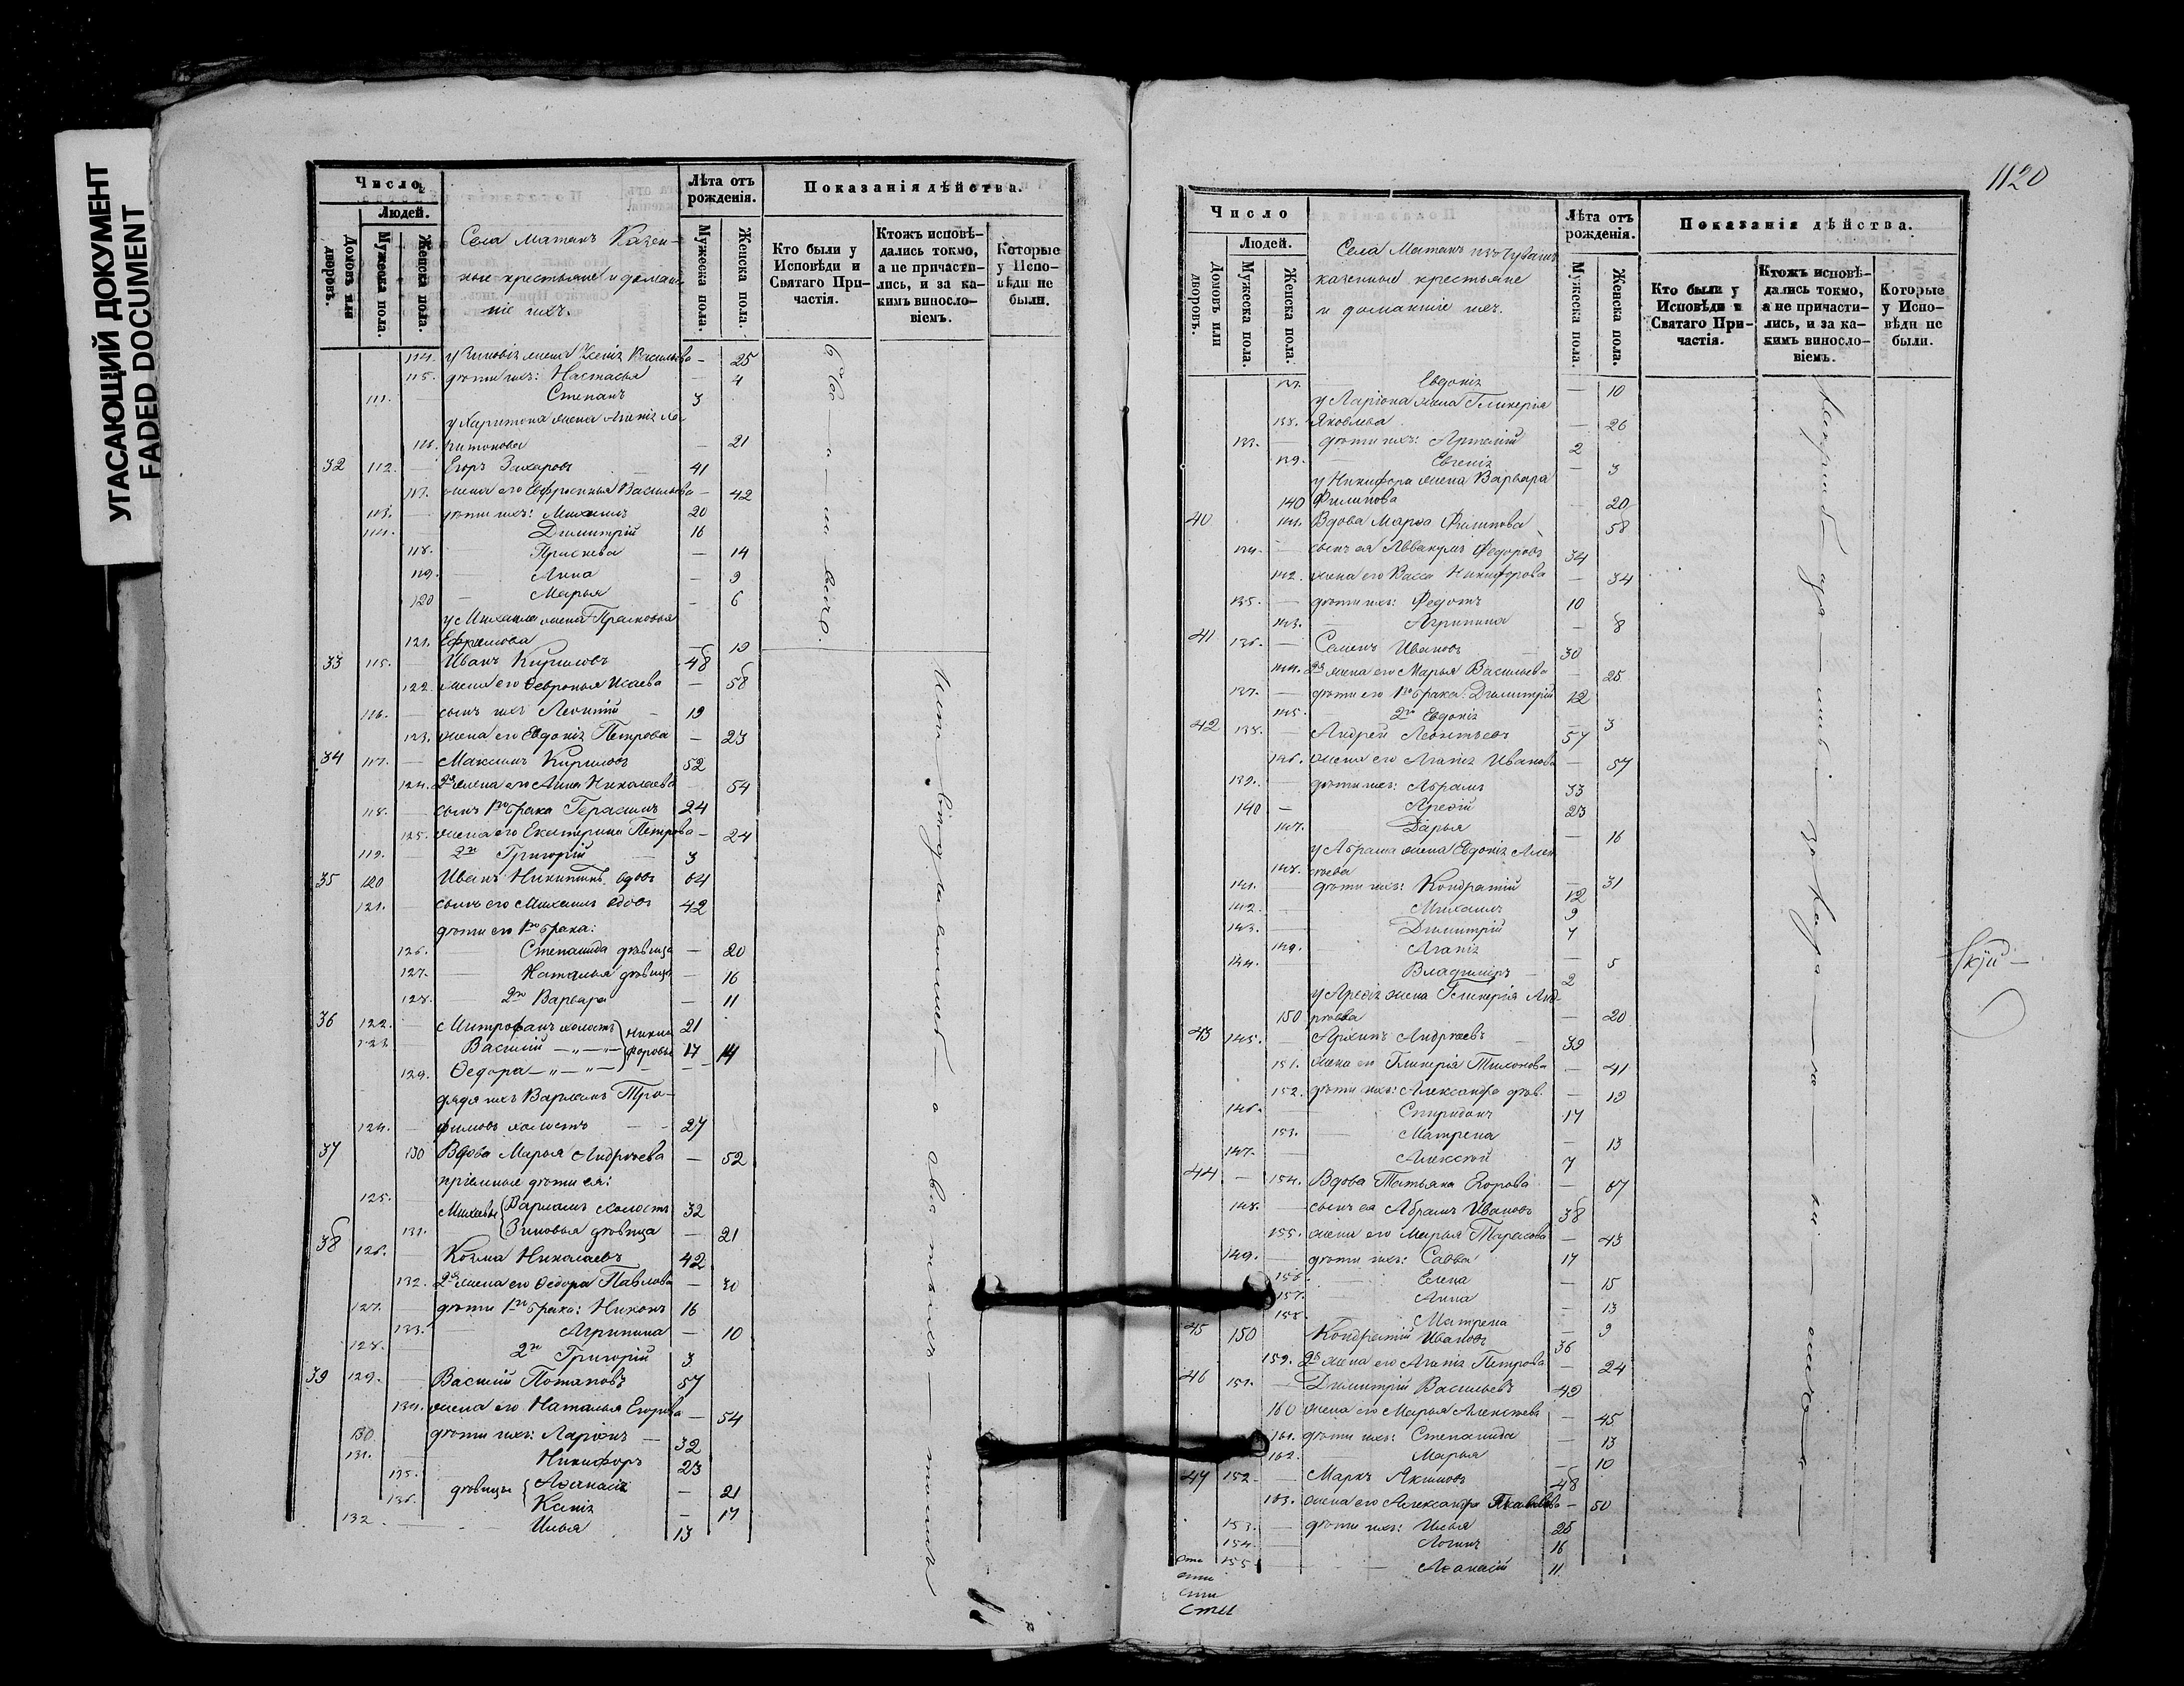 УГАСАЮЩИЙ ДОКУМЕНТ
FADED DOCUMENT
Число
Людей.
Домовъ или дворовъ.
Мужеска пола.
Женска пола.
Села Матакъ Казен-
ные крестьяне и домаш-
ніе ихъ.
Лѣта отъ рожденія.
Мужеска пола.
Женска пола.
Показанія дѣйства.
Кто были у Исповѣди и Святаго При-частія.
Ктожъ исповѣ-дались токмо, а не причасти-лись, и за ка-кимъ винослo-віемъ.
Которые у Испо-вѣди не были.
114. у Зиновія жена Ксенія Васильева — 25
115. дѣти ихъ: Настасья — 4
111. — Степанъ 3
у Харитона жена Агапія
116. — 21
32 112. — Егоръ Захаровъ 41
117. жена его Евфросинья Васильева — 42
113. — дѣти ихъ: Михаилъ 20
114. Димитрій 16
118. — Прасковья — 14
119. — Анна — 9
120 — Марья — 6
у Михаила жена Прасковья
121. Ефремова — 19
33 115. — Иванъ Кириловъ 48
122. жена его Февронья Исаева — 58
116. — сынъ ихъ Леонтій — 19
123. жена его Евдокія Петрова — 23
34 117. — Максимъ Кириловъ 52
124. 2я жена его Анна Николаева — 54
118. — сынъ 1го брака Герасимъ 24
125. жена его Екатерина Петрова — 24
119. — 2го Григорій — 3
35 120 Иванъ Никитинъ вдовъ 64
121. — сынъ его Михаилъ вдовъ 42
дѣти его 1го брака:
126. — Степанида дѣвица — 20
127. — Наталья дѣвица — 16
128. — 2го Варвара — 11
36 122. — Митрофанъ холостъ 21
Никифоровы
123. Василій — „ — „ — 17 14
129. Федора — „ — „ —
дядя ихъ Варламъ Тро-
124. — фимовъ холостъ — 27
37 130 Вдова Марья Андреева — 52
пріемные дѣти ея:
125. — Михѣевы Варламъ холостъ 32
131. Зиновья дѣвица — 21
38 126. — Козма Николаевъ 42
132. 2я жена его Федора Павлова — 30
127. — дѣти 1го брака: Никонъ 16
133. — Агрипина — 10
128. — 2го Григорій 3
39 129. — Василій Потаповъ 57
134. жена его Наталья Егорова — 54
130. дѣти ихъ: Ларіонъ — 32
131. — Никифоръ 23
135. дѣвицы Афанасія — 21
136. Ксенія — 17
132. — Илья 13
1120
Число
Людей.
Домовъ или дворовъ.
Мужеска пола.
Женска пола.
Села Матакъ изъ Чувашъ
казенные крестьяне
и домашніе ихъ.
Лѣта отъ рожденія.
Мужеска пола.
Женска пола.
Показанія дѣйства.
Кто были у Исповѣди и Святаго При-частія.
Ктожъ исповѣ-дались токмо, а не причасти-лись, и за ка-кимъ винослo-віемъ.
Которые у Испо-вѣди не были.
137. Евдокія — 10
у Ларіона жена Гликерія
138. Яковлева — 26
133. — дѣти ихъ: Артемій 2
139. — Евгенія — 3
у Никифора жена Варвара
140 Филипова — 20
40 141. Вдова Марфа Филипова 58
134. — сынъ ея Аввакумъ Федоровъ 34
142. жена его Васса Никифорова — 34
135. — дѣти ихъ: Федотъ 10
143. — Агрипина — 8
41 136. — Семенъ Ивановъ — 30
144. 2я жена его Марья Васильева — 25
137. — дѣти его 1го брака: Димитрій 12
145. 2го Евдокія — 3
42 138. — Андрей Леонтьевъ 57
146. жена его Агапія Иванова — 57
139. — дѣти ихъ: Абрамъ 33
140 — Арефій 23
147. — Дарья — 16
у Абрама жена Евдокія Алек-
148. сѣева — 31
141. — дѣти ихъ: Кондратій 12
142. — Михаилъ 9
143. — Димитрій 7
149. — Агапія — 5
144. Владиміръ — 2
у Арефія жена Гликерія Анд-
150 реева — 20
43 145. — Архипъ Андреевъ — 39
151. жена его Гликерія Тихонова — 41
152. дѣти ихъ: Александра дѣв. — 19
146. — Спиридонъ 17
153. — Матрена — 13
147. — Алексѣй 7
44 — 154. Вдова Татьяна Егорова — 67
148. — сынъ ея Абрамъ Ивановъ 38
155. жена его Марья Тарасова — 43
149. — дѣти ихъ: Савва 17
156. — Елена — 15
157. — Анна — 13
158. Матрена — 9
45 150 — Кондратій Ивановъ 36
159. 2я жена его Агапія Петрова — 24
46 151. — Димитрій Васильевъ 49
160 жена его Марья Алексѣева — 45
161. дѣти ихъ: Степанида — 13
162. — Марья — 10
47 152. — Маркъ Якимовъ 48
163. жена его Александра — 50
153. — дѣти ихъ: Илья 25
154. — Логинъ 16
155 — Афанасій 11